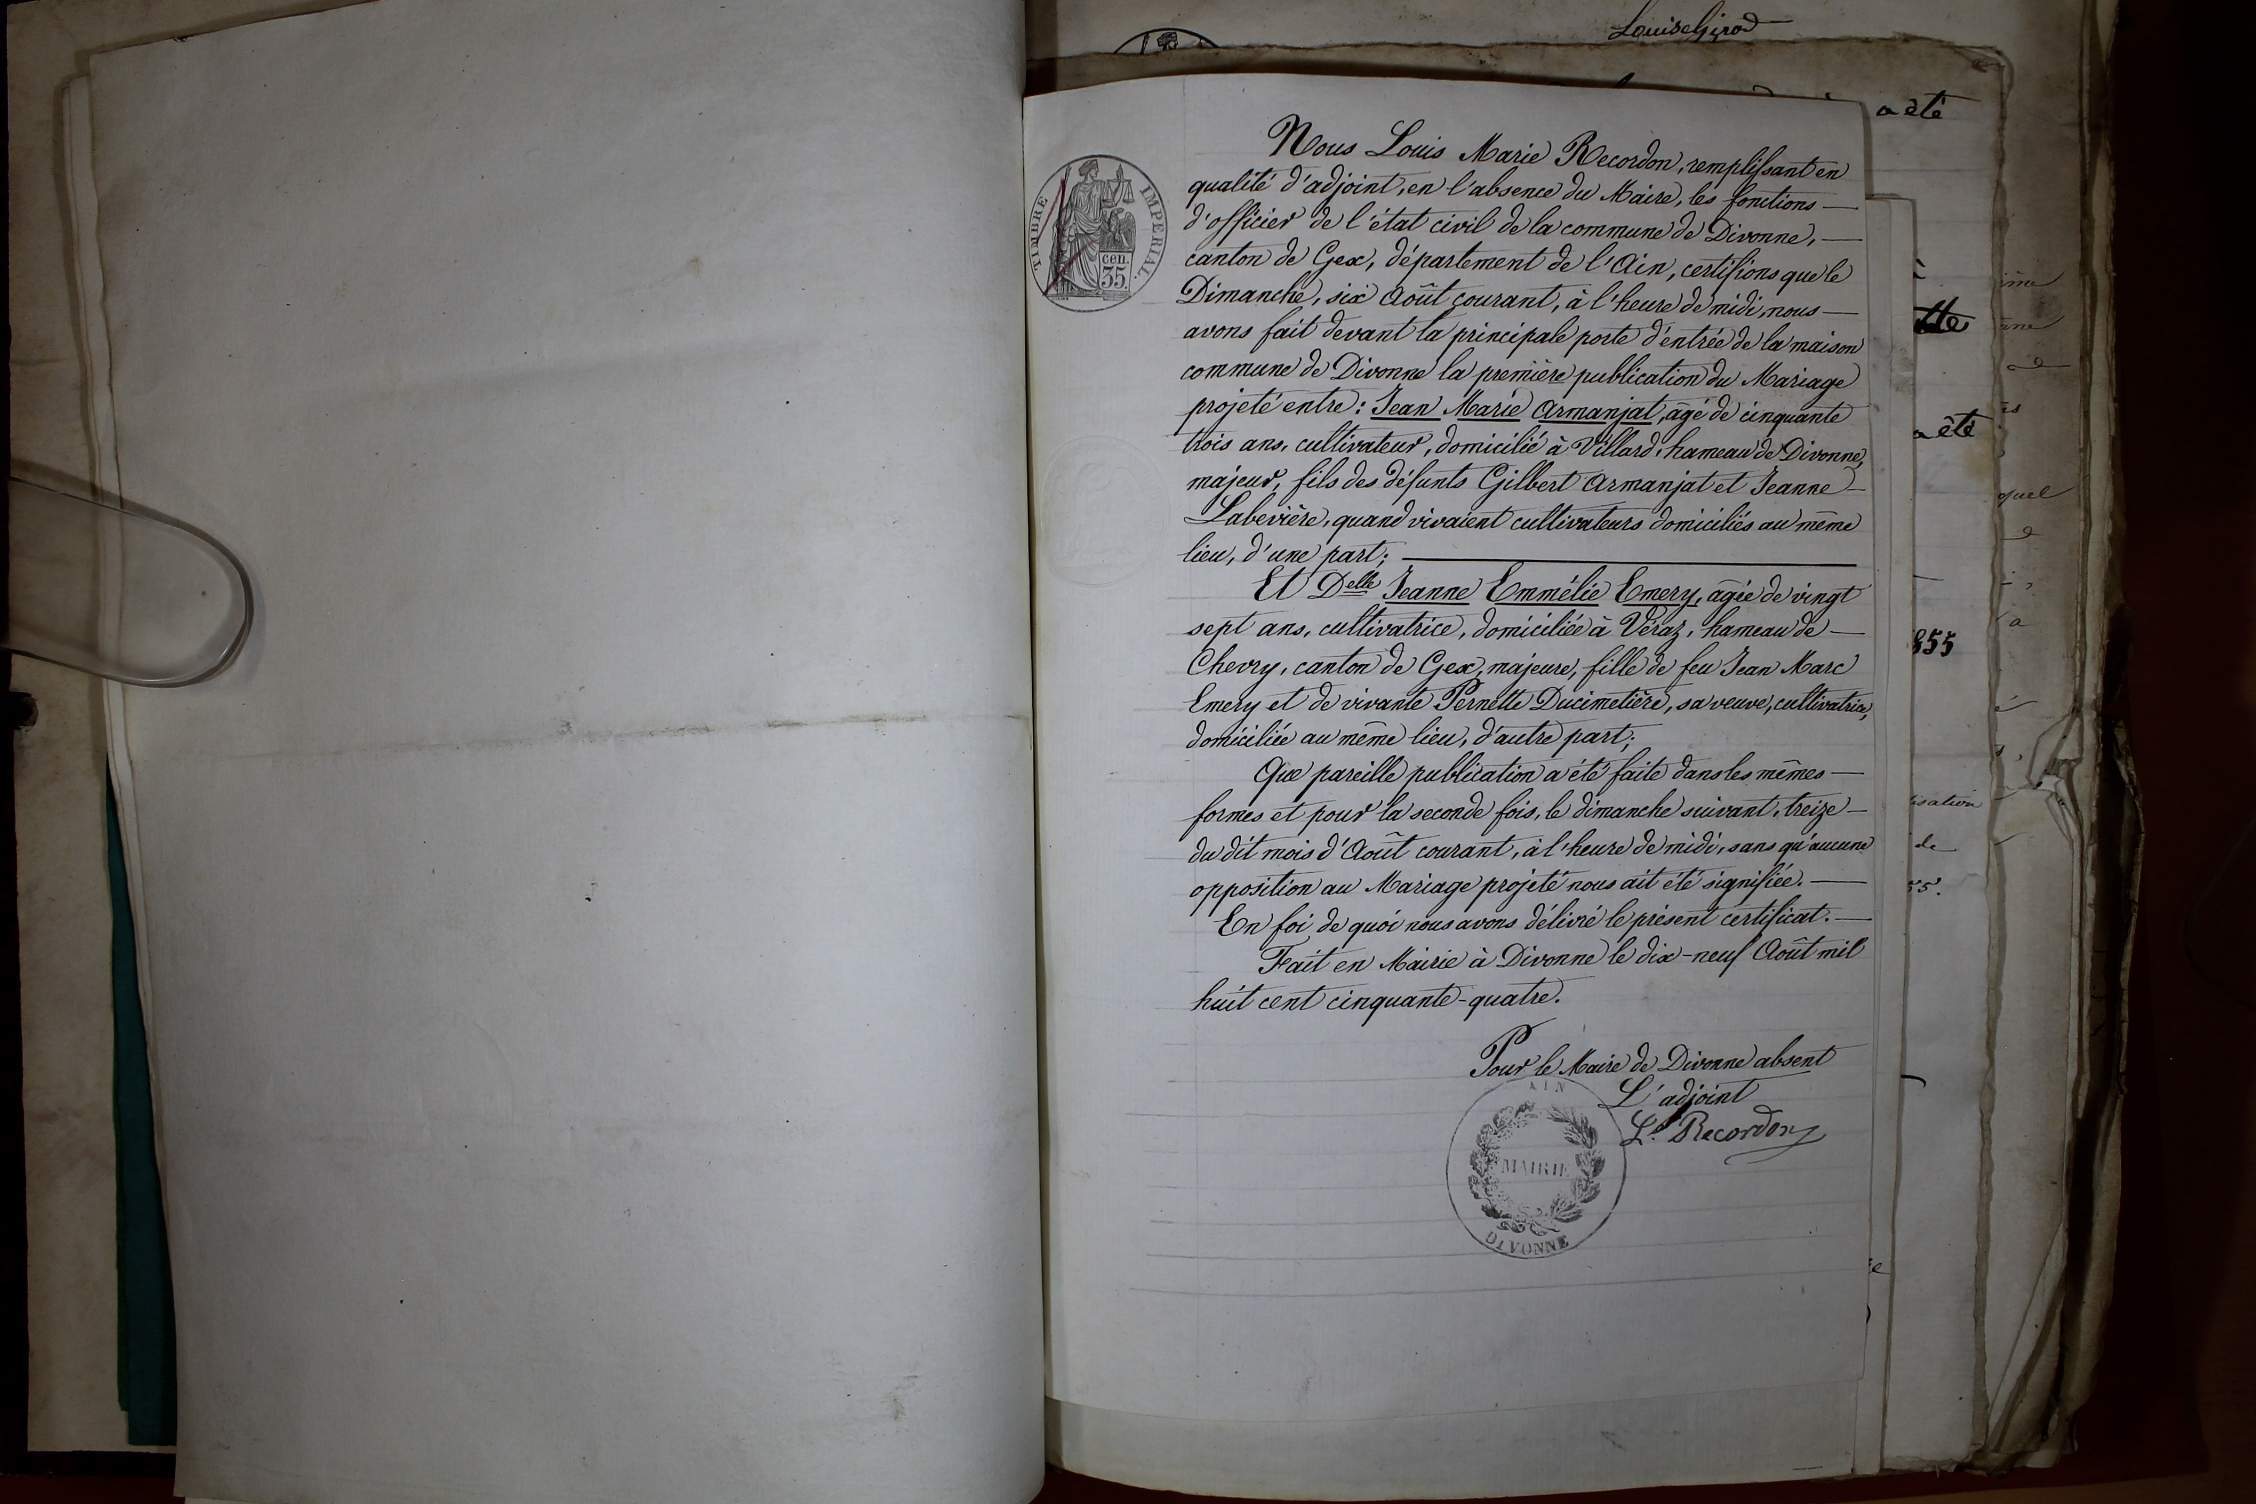 Louise Girod
a été
TIMBRE IMPERIAL
cen.
35.
Nous Louis Marie Recordon, remplissant en
qualité d'adjoint, en l'absence du Maire, les fonctions
d'officier de l'état civil de la commune de Divonne,
canton de Gex, département de l'Ain, certifions que le
Dimanche, six Août courant, à l'heure de midi, nous
avons fait devant la principale porte d'entrée de la maison
commune de Divonne la première publication du Mariage
projeté entre : Jean Marie Armanjat, âgé de cinquante
trois ans, cultivateur, domicilié à Villard, hameau de Divonne,
majeur, fils des défunts Gilbert Armanjat et Jeanne
Labevière, quand vivaient cultivateurs domiciliés au même
lieu, d'une part ;
Et Delle Jeanne Emmélie Emery, âgée de vingt
sept ans, cultivatrice, domiciliée à Véraz, hameau de
Chevry, canton de Gex, majeure, fille de feu Jean Marc
Emery et de vivante Pernette Ducimetière, sa veuve, cultivatrice,
domiciliée au même lieu, d'autre part ;
Que pareille publication a été faite dans les mêmes
formes et pour la seconde fois, le dimanche suivant, treize
du dit mois d'Août courant, à l'heure de midi, sans qu'aucune
opposition au Mariage projeté nous ait été signifiée.
En foi de quoi nous avons délivré le présent certificat.
Fait en Mairie à Divonne le dix-neuf Août mil
huit cent cinquante-quatre.
Pour le Maire de Divonne absent
L'adjoint
Ls Recordon
AIN
MAIRIE
DIVONNE
été
855
quel
de
55.